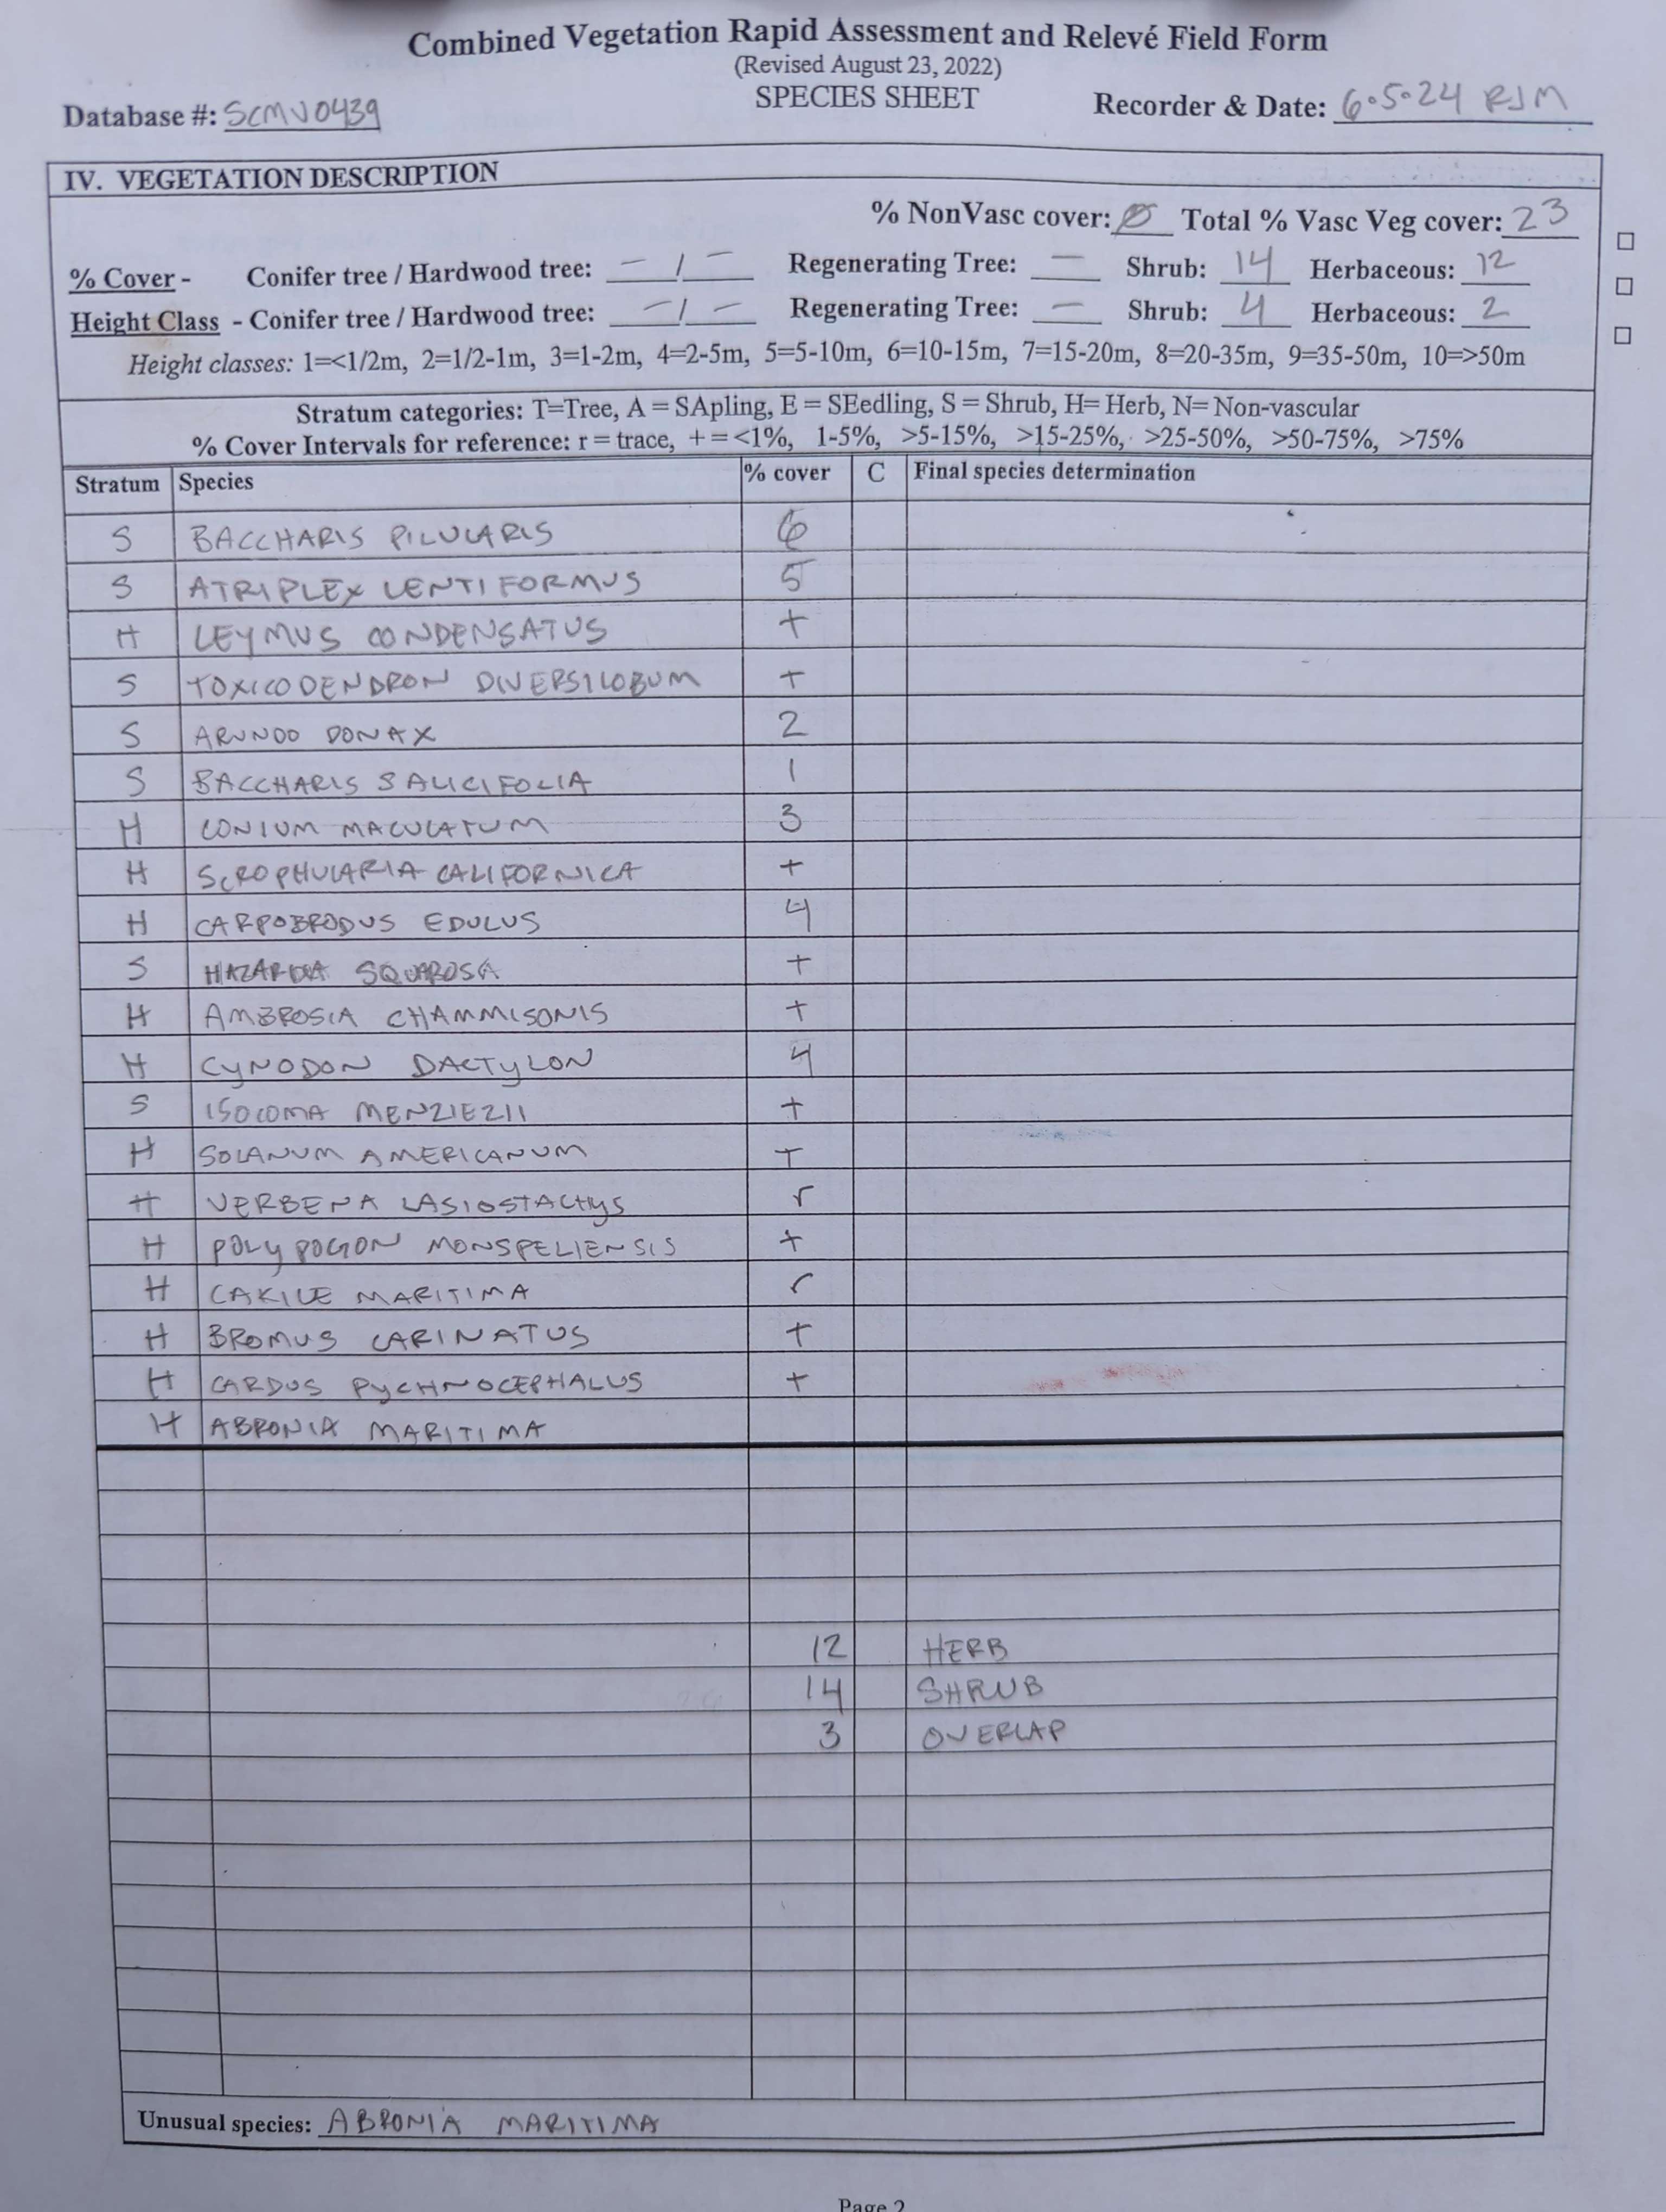 Combined Vegetation Rapid Assessment and Relevé Field Form
(Revised August 23, 2022)
SPECIES SHEET
Database #: SCMV0439
Recorder & Date: 6.5.24 RJM
IV. VEGETATION DESCRIPTION
% NonVasc cover: Ø Total % Vasc Veg cover: 23
% Cover - Conifer tree / Hardwood tree: — / — Regenerating Tree: — Shrub: 14 Herbaceous: 12
Height Class - Conifer tree / Hardwood tree: — / — Regenerating Tree: — Shrub: 4 Herbaceous: 2
Height classes: 1=<1/2m, 2=1/2-1m, 3=1-2m, 4=2-5m, 5=5-10m, 6=10-15m, 7=15-20m, 8=20-35m, 9=35-50m, 10=>50m
Stratum categories: T=Tree, A = SApling, E = SEedling, S = Shrub, H= Herb, N= Non-vascular
% Cover Intervals for reference: r = trace, + = <1%, 1-5%, >5-15%, >15-25%, >25-50%, >50-75%, >75%
Stratum Species % cover C Final species determination
S BACCHARIS PILULARIS 6
S ATRIPLEX LENTIFORMUS 5
H LEYMUS CONDENSATUS +
S TOXICODENDRON DIVERSILOBUM +
S ARUNDO DONAX 2
S BACCHARIS SALICIFOLIA 1
H CONIUM MACULATUM 3
H SCROPHULARIA CALIFORNICA +
H CARPOBRODUS EDULUS 4
S HAZARDIA SQUAROSA +
H AMBROSIA CHAMMISONIS +
H CYNODON DACTYLON 4
S ISOCOMA MENZIEZII +
H SOLANUM AMERICANUM +
H VERBENA LASIOSTACHYS r
H POLYPOGON MONSPELIENSIS +
H CAKILE MARITIMA r
H BROMUS CARINATUS +
H CARDUS PYCHNOCEPHALUS +
H ABRONIA MARITIMA
12 HERB
14 SHRUB
3 OVERLAP
Unusual species: ABRONIA MARITIMA
Page 2